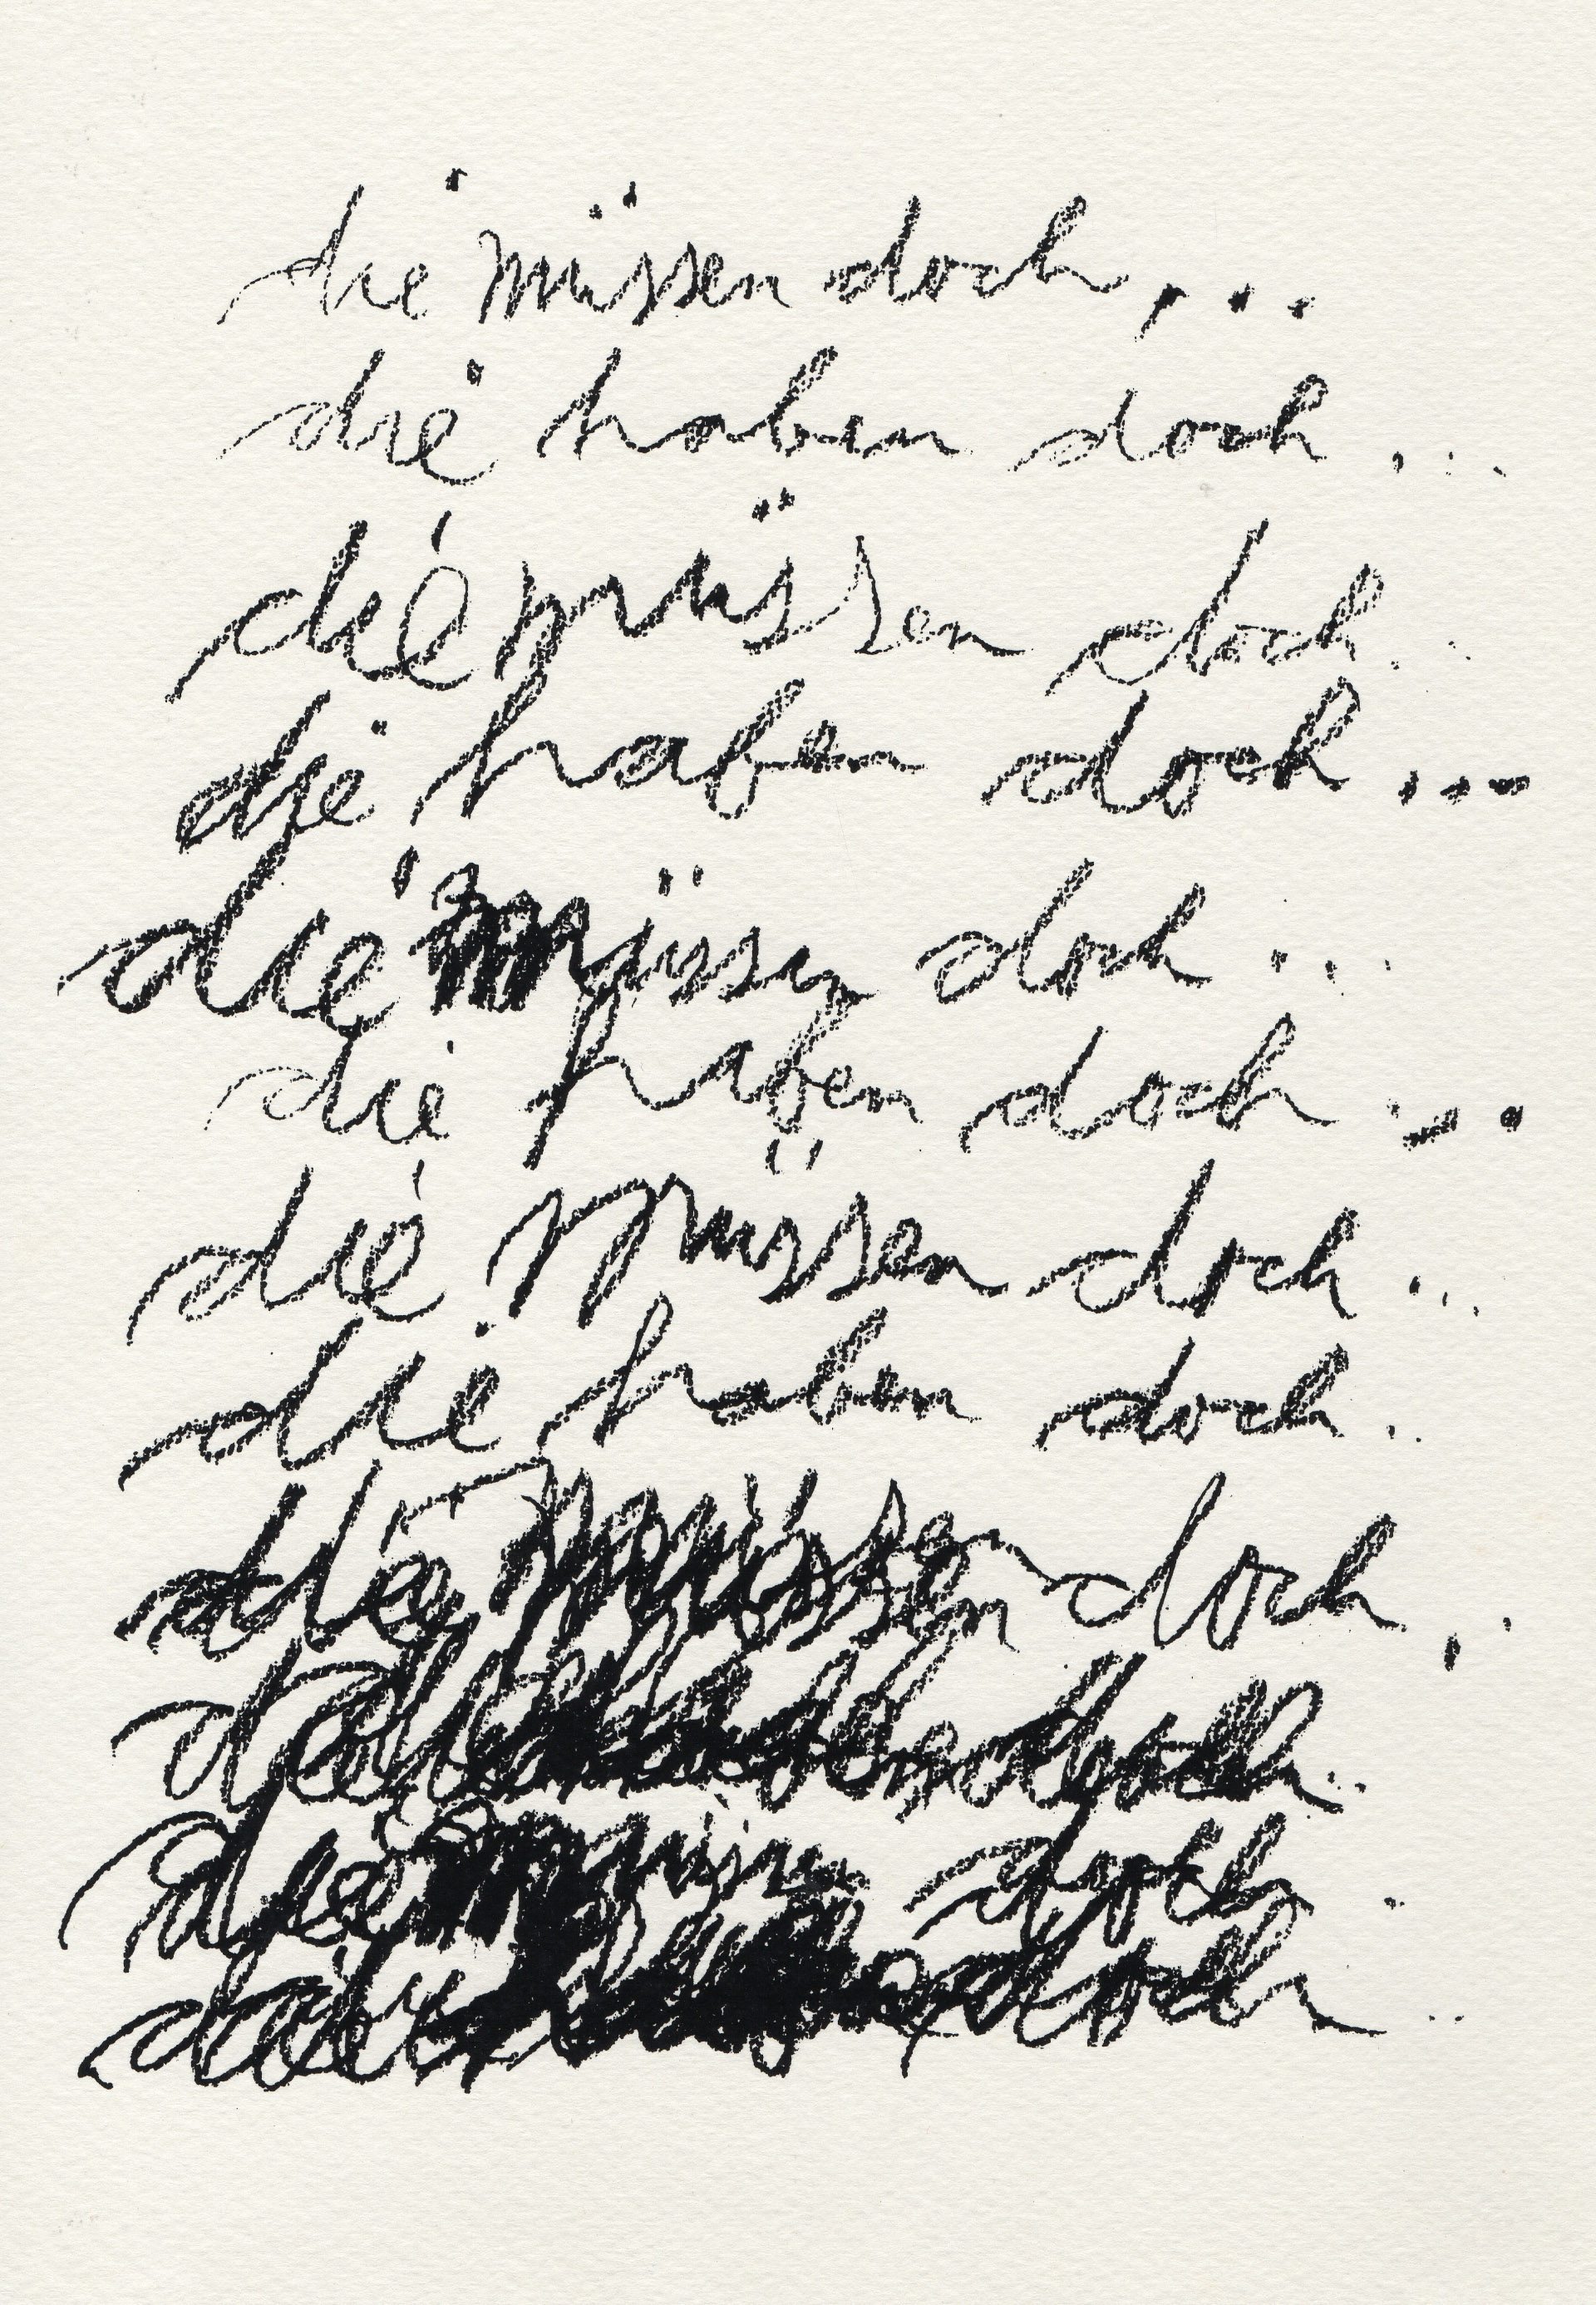 die müssen doch, . . .
die haben doch . . .
die müssen doch . . .
die haben doch . . .
die müssen doch . . .
die haben doch . . .
die müssen doch . . .
die haben doch . .
die müssen doch . .
doch . .
die müssen doch .
doch . .